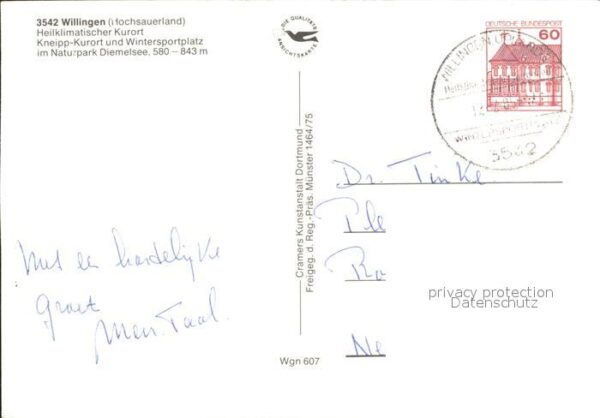 3542 Willingen (Hochsauerland)
Heilklimatischer Kurort
Kneipp-Kurort und Wintersportplatz
im Naturpark Diemelsee, 580 – 843 m
DIE QUALITÄTS
ANSICHTSKARTE
DEUTSCHE BUNDESPOST
60
WILLINGEN
3542
Cramers Kunstanstalt Dortmund
Freigeg. d. Reg.-Präs. Münster 1464/75
Dr. Tinke
Ple
Ra
privacy protection
Datenschutz
Ne
Met een hartelijke
groet
Mevr. Taal.
Wgn 607